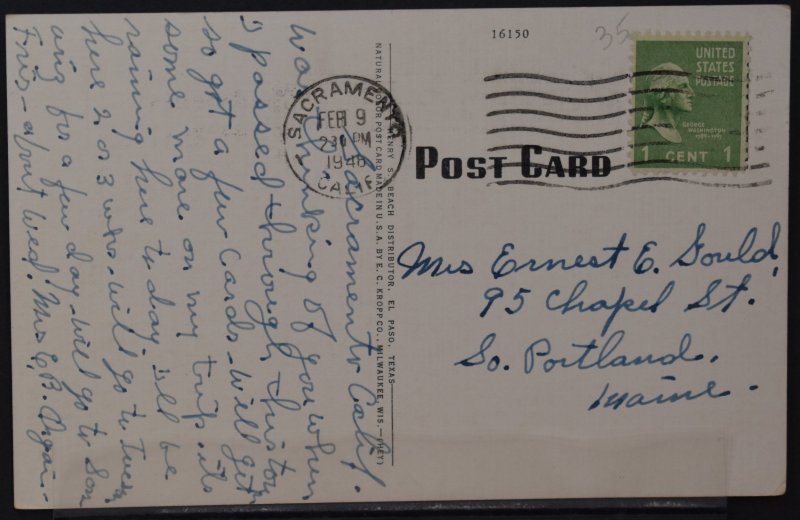 16150
35
UNITED
STATES
POSTAGE
GEORGE
WASHINGTON
1789-1797
1 CENT 1
SACRAMENTO
FEB 9
2 30 PM
1948
CALIF
POST CARD
HENRY S. BEACH DISTRIBUTOR, EL PASO, TEXAS
NATURAL COLOR POST CARD MADE IN U.S.A. BY E. C. KROPP CO., MILWAUKEE, WIS.
Mrs Ernest E. Gould
95 Chapel St.
So. Portland,
Maine.
Sacramento Calif.
Was thinking of you when
I passed through this town
so got a few cards. Will get
some more on my trip. its
raining here to day. will be
here 2 or 3 wks. will go to
for a few day. will go to San
about Wed. Mrs. C. B.